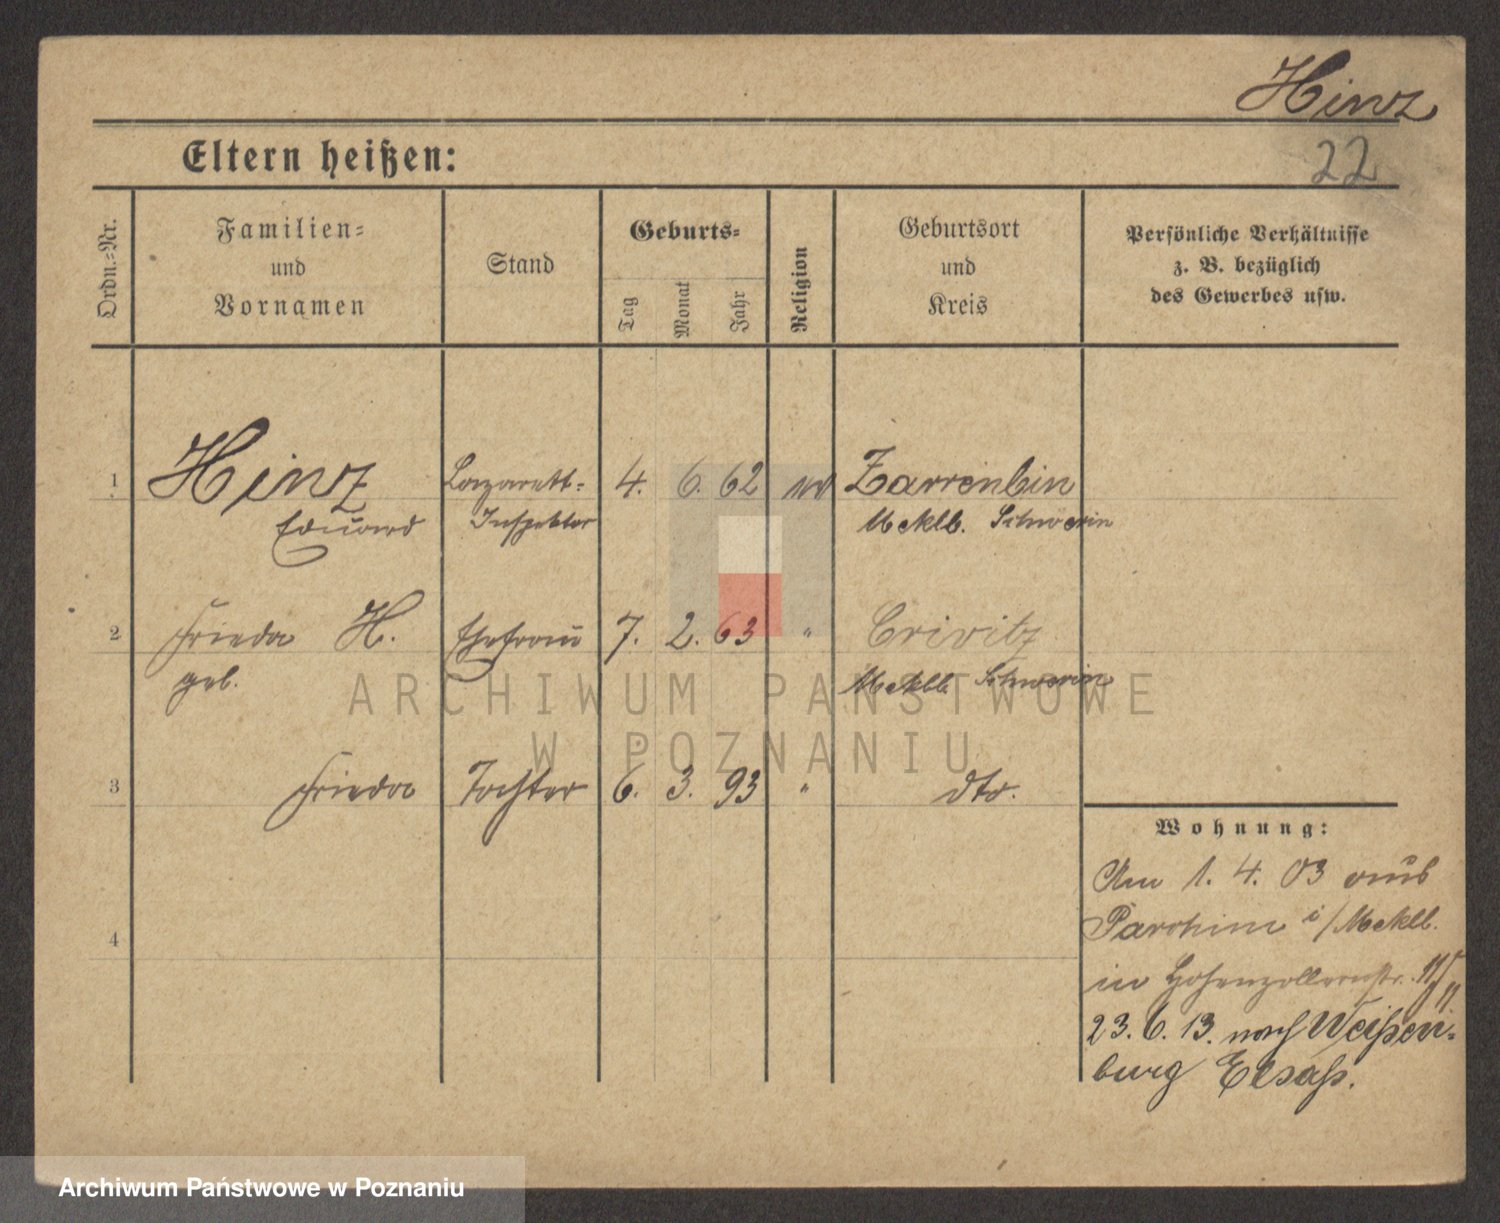 Hinz
22
Eltern heißen:
Ordn.-Nr.
Familien-
und
Vornamen
Stand
Geburts-
Tag
Monat
Jahr
Religion
Geburtsort
und
Kreis
Persönliche Verhältnisse
z. B. bezüglich
des Gewerbes usw.
1 Hinz Lazarett- 4. 6. 62 ev Zarrenbin
Eduard Inspektor Meklb. Schwerin
2 Frieda H. Ehefrau 7. 2. 63 " Crivitz
geb. Meklb. Schwerin
3 Frieda Tochter 6. 3. 93 " dto.
4
Wohnung:
Am 1. 4. 03 aus
Parchim i/Meklb.
in Hohenzollernstr.
23. 6. 13. nach Weißen-
burg Elsaß.
ARCHIWUM PAŃSTWOWE
W POZNANIU
Archiwum Państwowe w Poznaniu